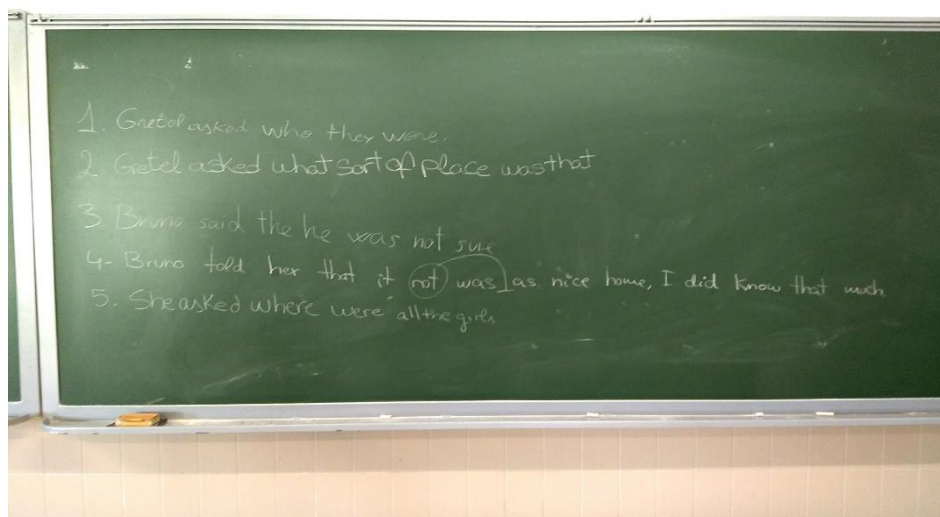 1. Gretel asked who they were.
2. Gretel asked what sort of place was that
3. Bruno said the he was not sure
4- Bruno told her that it not was as nice home, I did know that much.
5. She asked where were all the girls